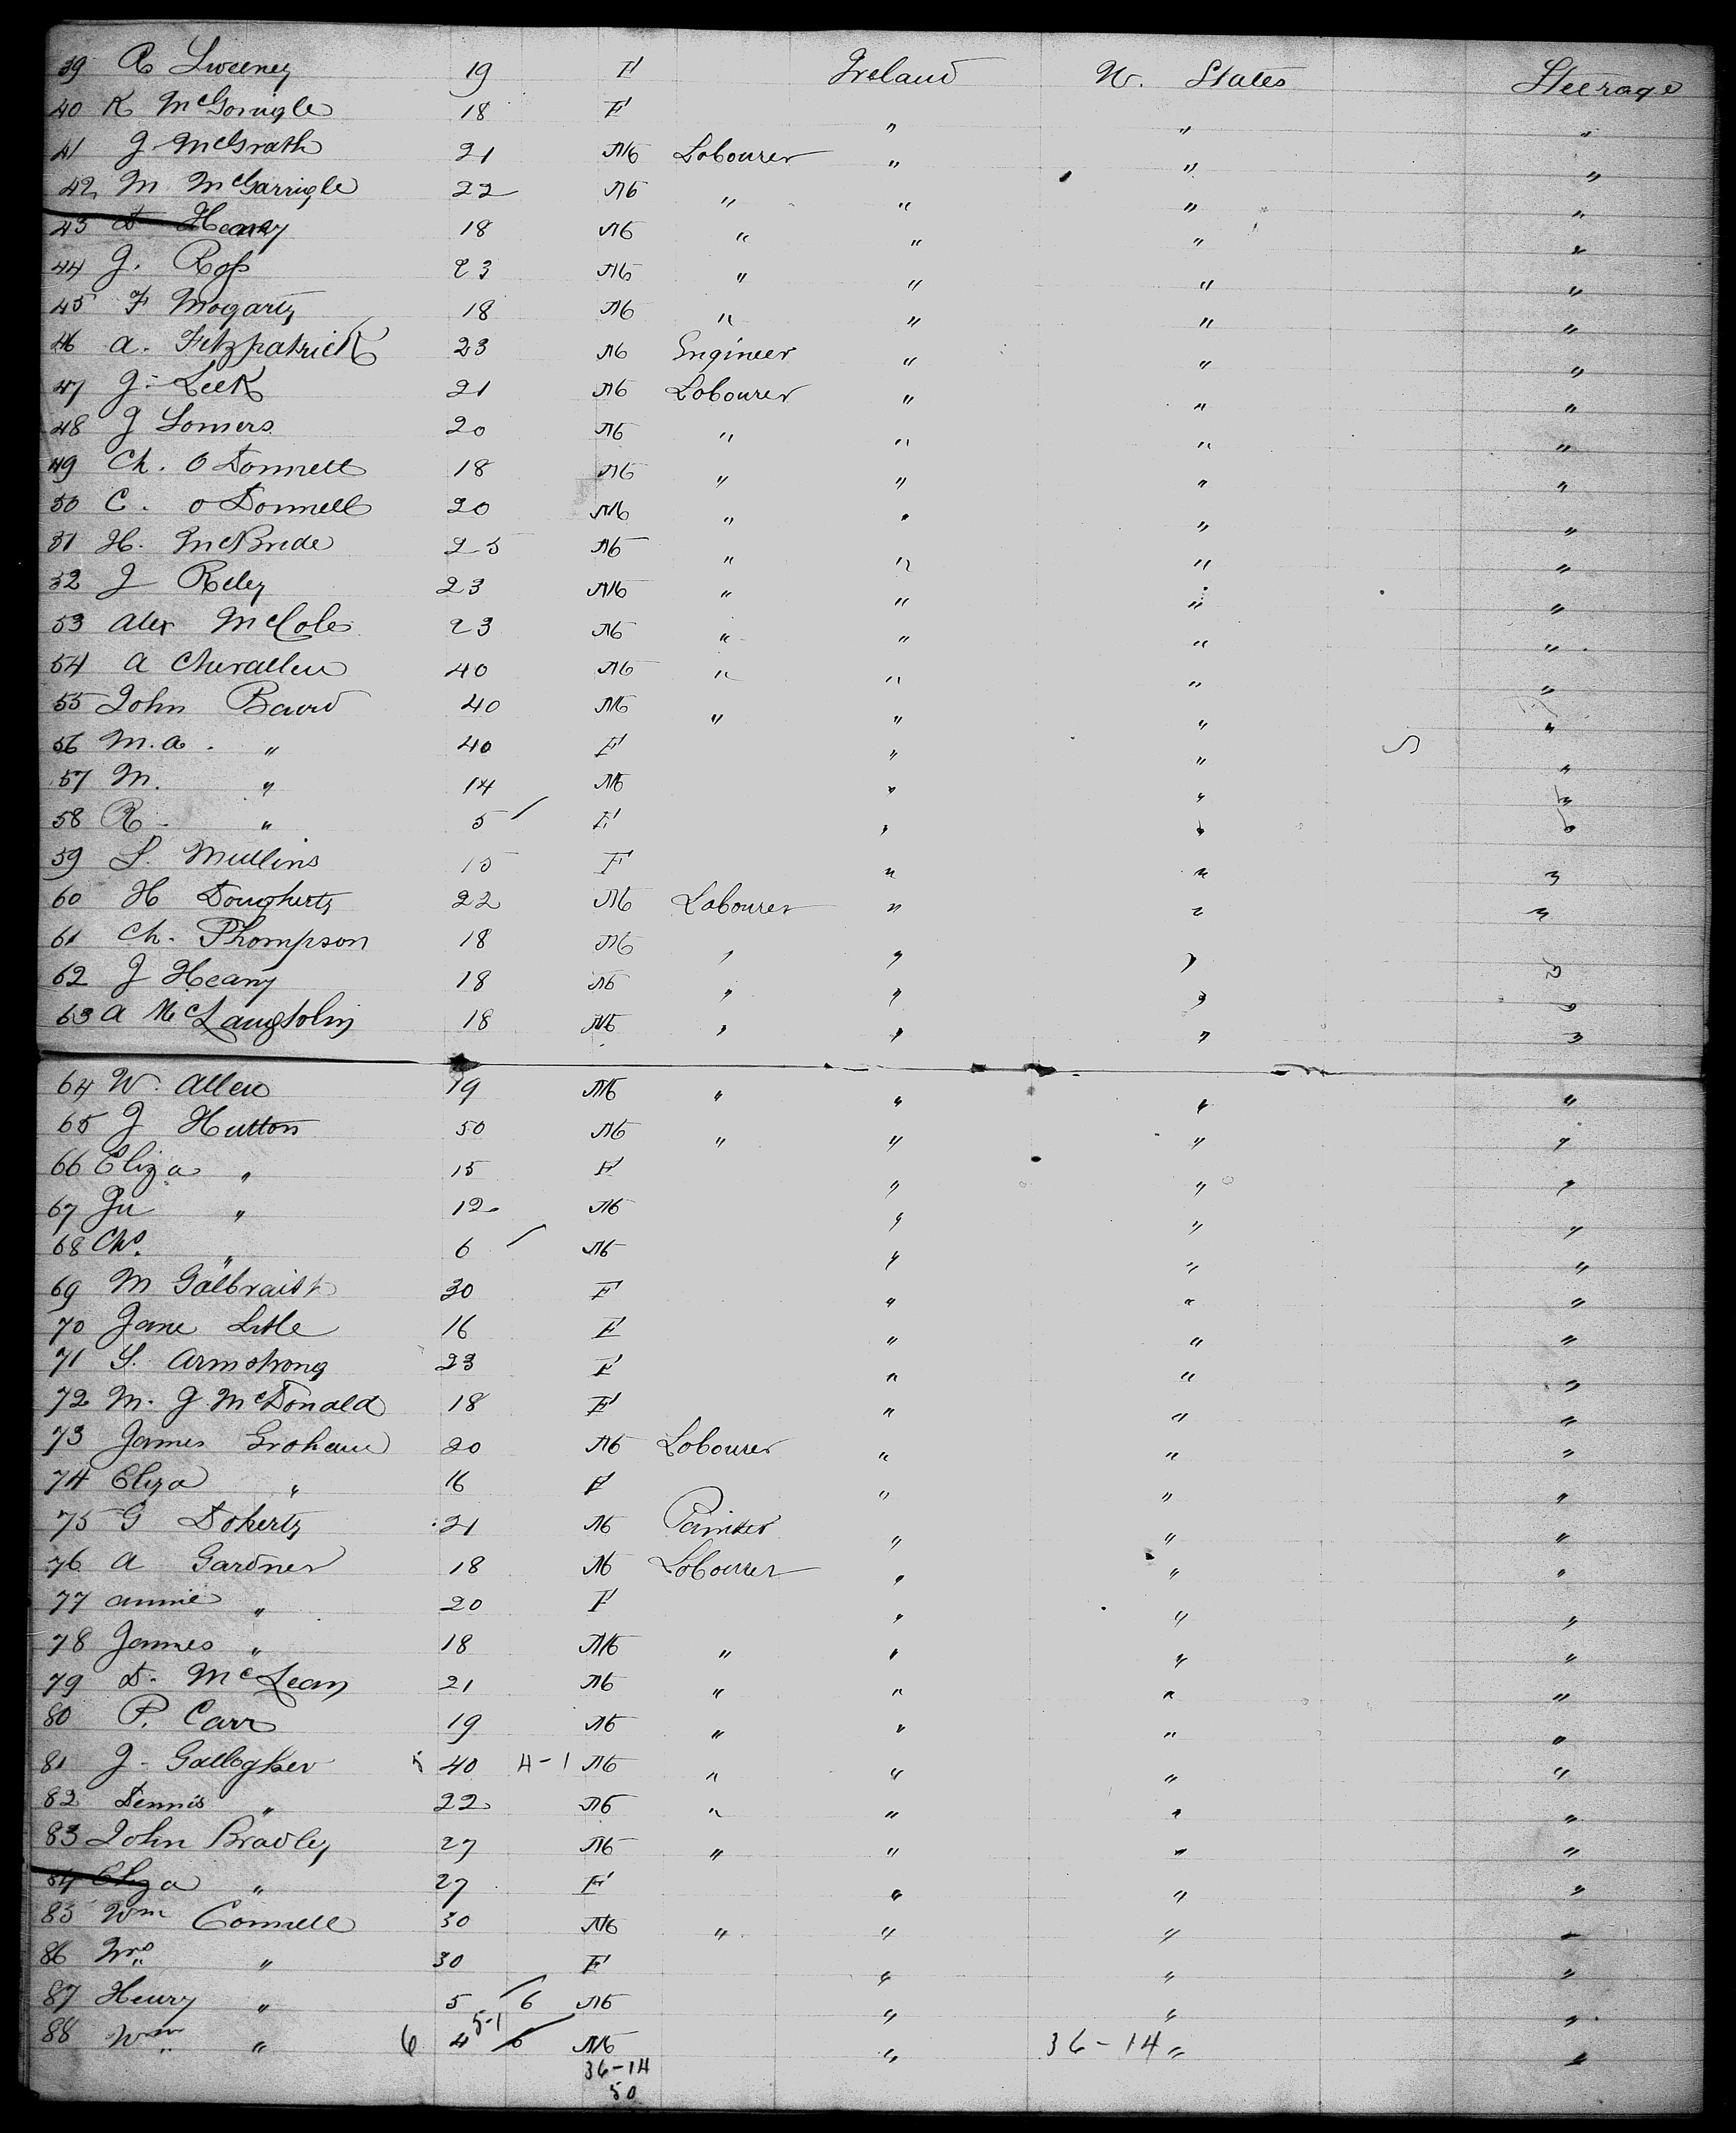 39 R Sweeney 19 F Ireland U. States Steerage
40 K McGonigle 18 F " " "
41 J. McGrath 21 M Labourer " " "
42 M McGarrigle 22 M " " " "
43 D Heany 18 M " " " "
44 J. Ross 23 M " " " "
45 F Mogarty 18 M " " " "
46 A. Fitzpatrick 23 M Engineer " " "
47 J. Leek 21 M Labourer " " "
48 J Somers 20 M " " " "
49 Ch. O Donnell 18 M " " " "
50 C. O Donnell 20 M " " " "
51 H. McBride 25 M " " " "
52 J Reley 23 M " " " "
53 Alex McCole 23 M " " " "
54 A 40 M " " " "
55 John Baird 40 M " " " "
56 M. A. " 40 F " " "
57 M. " 14 M " " "
58 R " 5 F " " "
59 S. Mullins 15 F " " "
60 H Dougherty 22 M Labourer " " "
61 Ch. Thompson 18 M " " " "
62 J Heany 18 M " " " "
63 A McLaughlin 18 M " " " "
64 W. Allen 19 M " " " "
65 J Hutton 50 M " " " "
66 Eliza " 15 F " " "
67 " 12 M " " "
68 Chs. " 6 M " " "
69 M Galbraith 30 F " " "
70 Jane Litle 16 F " " "
71 S. Armstrong 23 F " " "
72 M. J McDonald 18 F " " "
73 James Graham 20 M Labourer " " "
74 Eliza " 16 F " " "
75 G Doherty 21 M Painter " " "
76 A Gardner 18 M Labourer " " "
77 Annie " 20 F " " "
78 James " 18 M " " " "
79 D. McLean 21 M " " " "
80 P. Carr 19 M " " " "
81 J. Gallogher 40 4-1 M " " " "
82 Dennis " 22 M " " " "
83 John Bradley 27 M " " " "
84 Eliza " 27 F " " "
85 Wm Connell 30 M " " " "
86 Mrs " 30 F " " "
87 Henry " 5 6 M " " "
88 Wm " 6 4 5-1 6 M " 36-14 " "
36-14
50